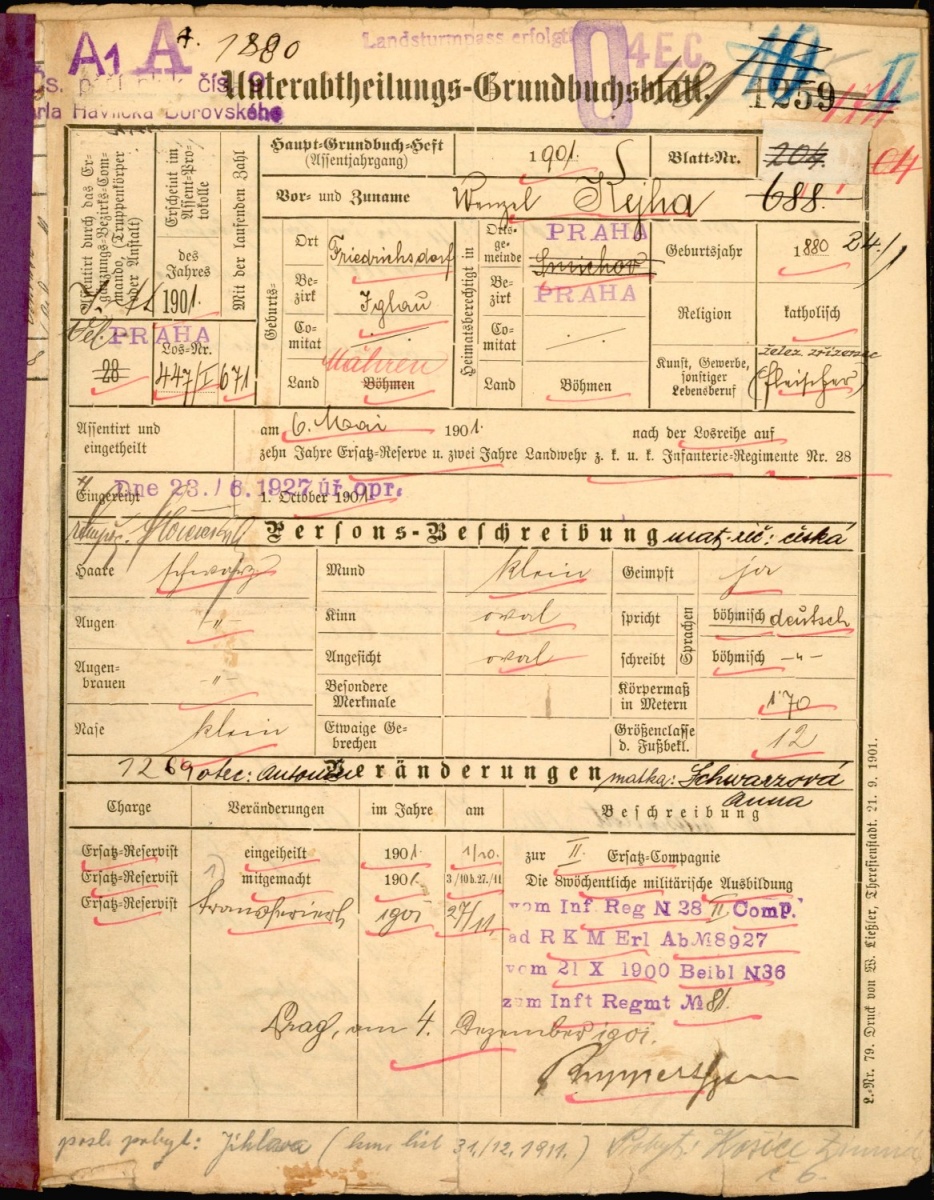 A1 A 4. 1880 Landsturmpass erfolgt 0 4EC
čís. 9
Karla Havlíčka Borovského
Unterabtheilungs-Grundbuchsblatt. 1259
Assentirt durch das Ergänzungs-Bezirks-Commando, (Truppenkörper oder Anstalt)
28
PRAHA
Erscheint im Assent-Protokolle
des Jahres
1901.
Los-Nr.
447/I
Mit der laufenden Zahl
671
Haupt-Grundbuch-Heft
(Assentjahrgang)
1901.
Blatt-Nr. 204 64
688
Vor- und Zuname Wenzel Kejha
Geburts-
Ort Friedrichsdorf
Bezirk Iglau
Comitat
Land Böhmen Mähren
Heimatsberechtigt in
Ortsgemeinde Smichov PRAHA
Bezirk PRAHA
Comitat
Land Böhmen
Geburtsjahr 1880 24./1
Religion katholisch
Kunst, Gewerbe, sonstiger Lebensberuf želez. zřízenec
(Fleischer)
Assentirt und eingetheilt
am 6. Mai 1901. nach der Losreihe auf
zehn Jahre Ersatz-Reserve u. zwei Jahre Landwehr z. k. u. k. Infanterie-Regimente Nr. 28
Eingereiht 1. October 1901.
Dne 23./6.1927 úř. opr.
Persons-Beschreibung mat. řeč: česká
Haare schwarz
Augen -"-
Augenbrauen -"-
Nase klein
Mund klein
Kinn oval
Angesicht oval
Besondere Merkmale
Etwaige Gebrechen
Geimpft ja
spricht Sprachen böhmisch deutsch
schreibt böhmisch -"-
Körpermaß in Metern 1·70
Größenclasse d. Fußbekl. 12
1269 otec: Antonín Veränderungen matka: Schwarzová
Anna
Charge Veränderungen im Jahre am Beschreibung
Ersatz-Reservist eingeiheilt 1901. 1/10. zur II. Ersatz-Compagnie
Ersatz-Reservist mitgemacht 1901. 3/10 b. 27./11 Die 8wöchentliche militärische Ausbildung
Ersatz-Reservist transferiert 1901 27/11. vom Inf Reg N 28 II Comp.
ad R K M Erl Ab № 8927
vom 21 X 1900 Beibl N36
zum Inft Regmt № 81.
Prag, am 4. Dezember 1901.
posl. pobyt: Jihlava ( list 31./12. 1911.) Pobyt: Kosice Zimniá
č 6.
L.-Nr. 79. Druck von W. Ließler, Theresienstadt. 21. 9. 1901.